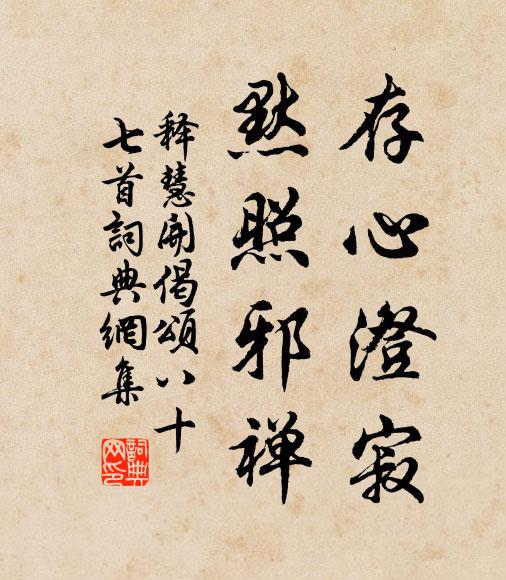 存心澄寂
默照邪禅
释慧開偈頌八十
七首詞典網集
詞典网印